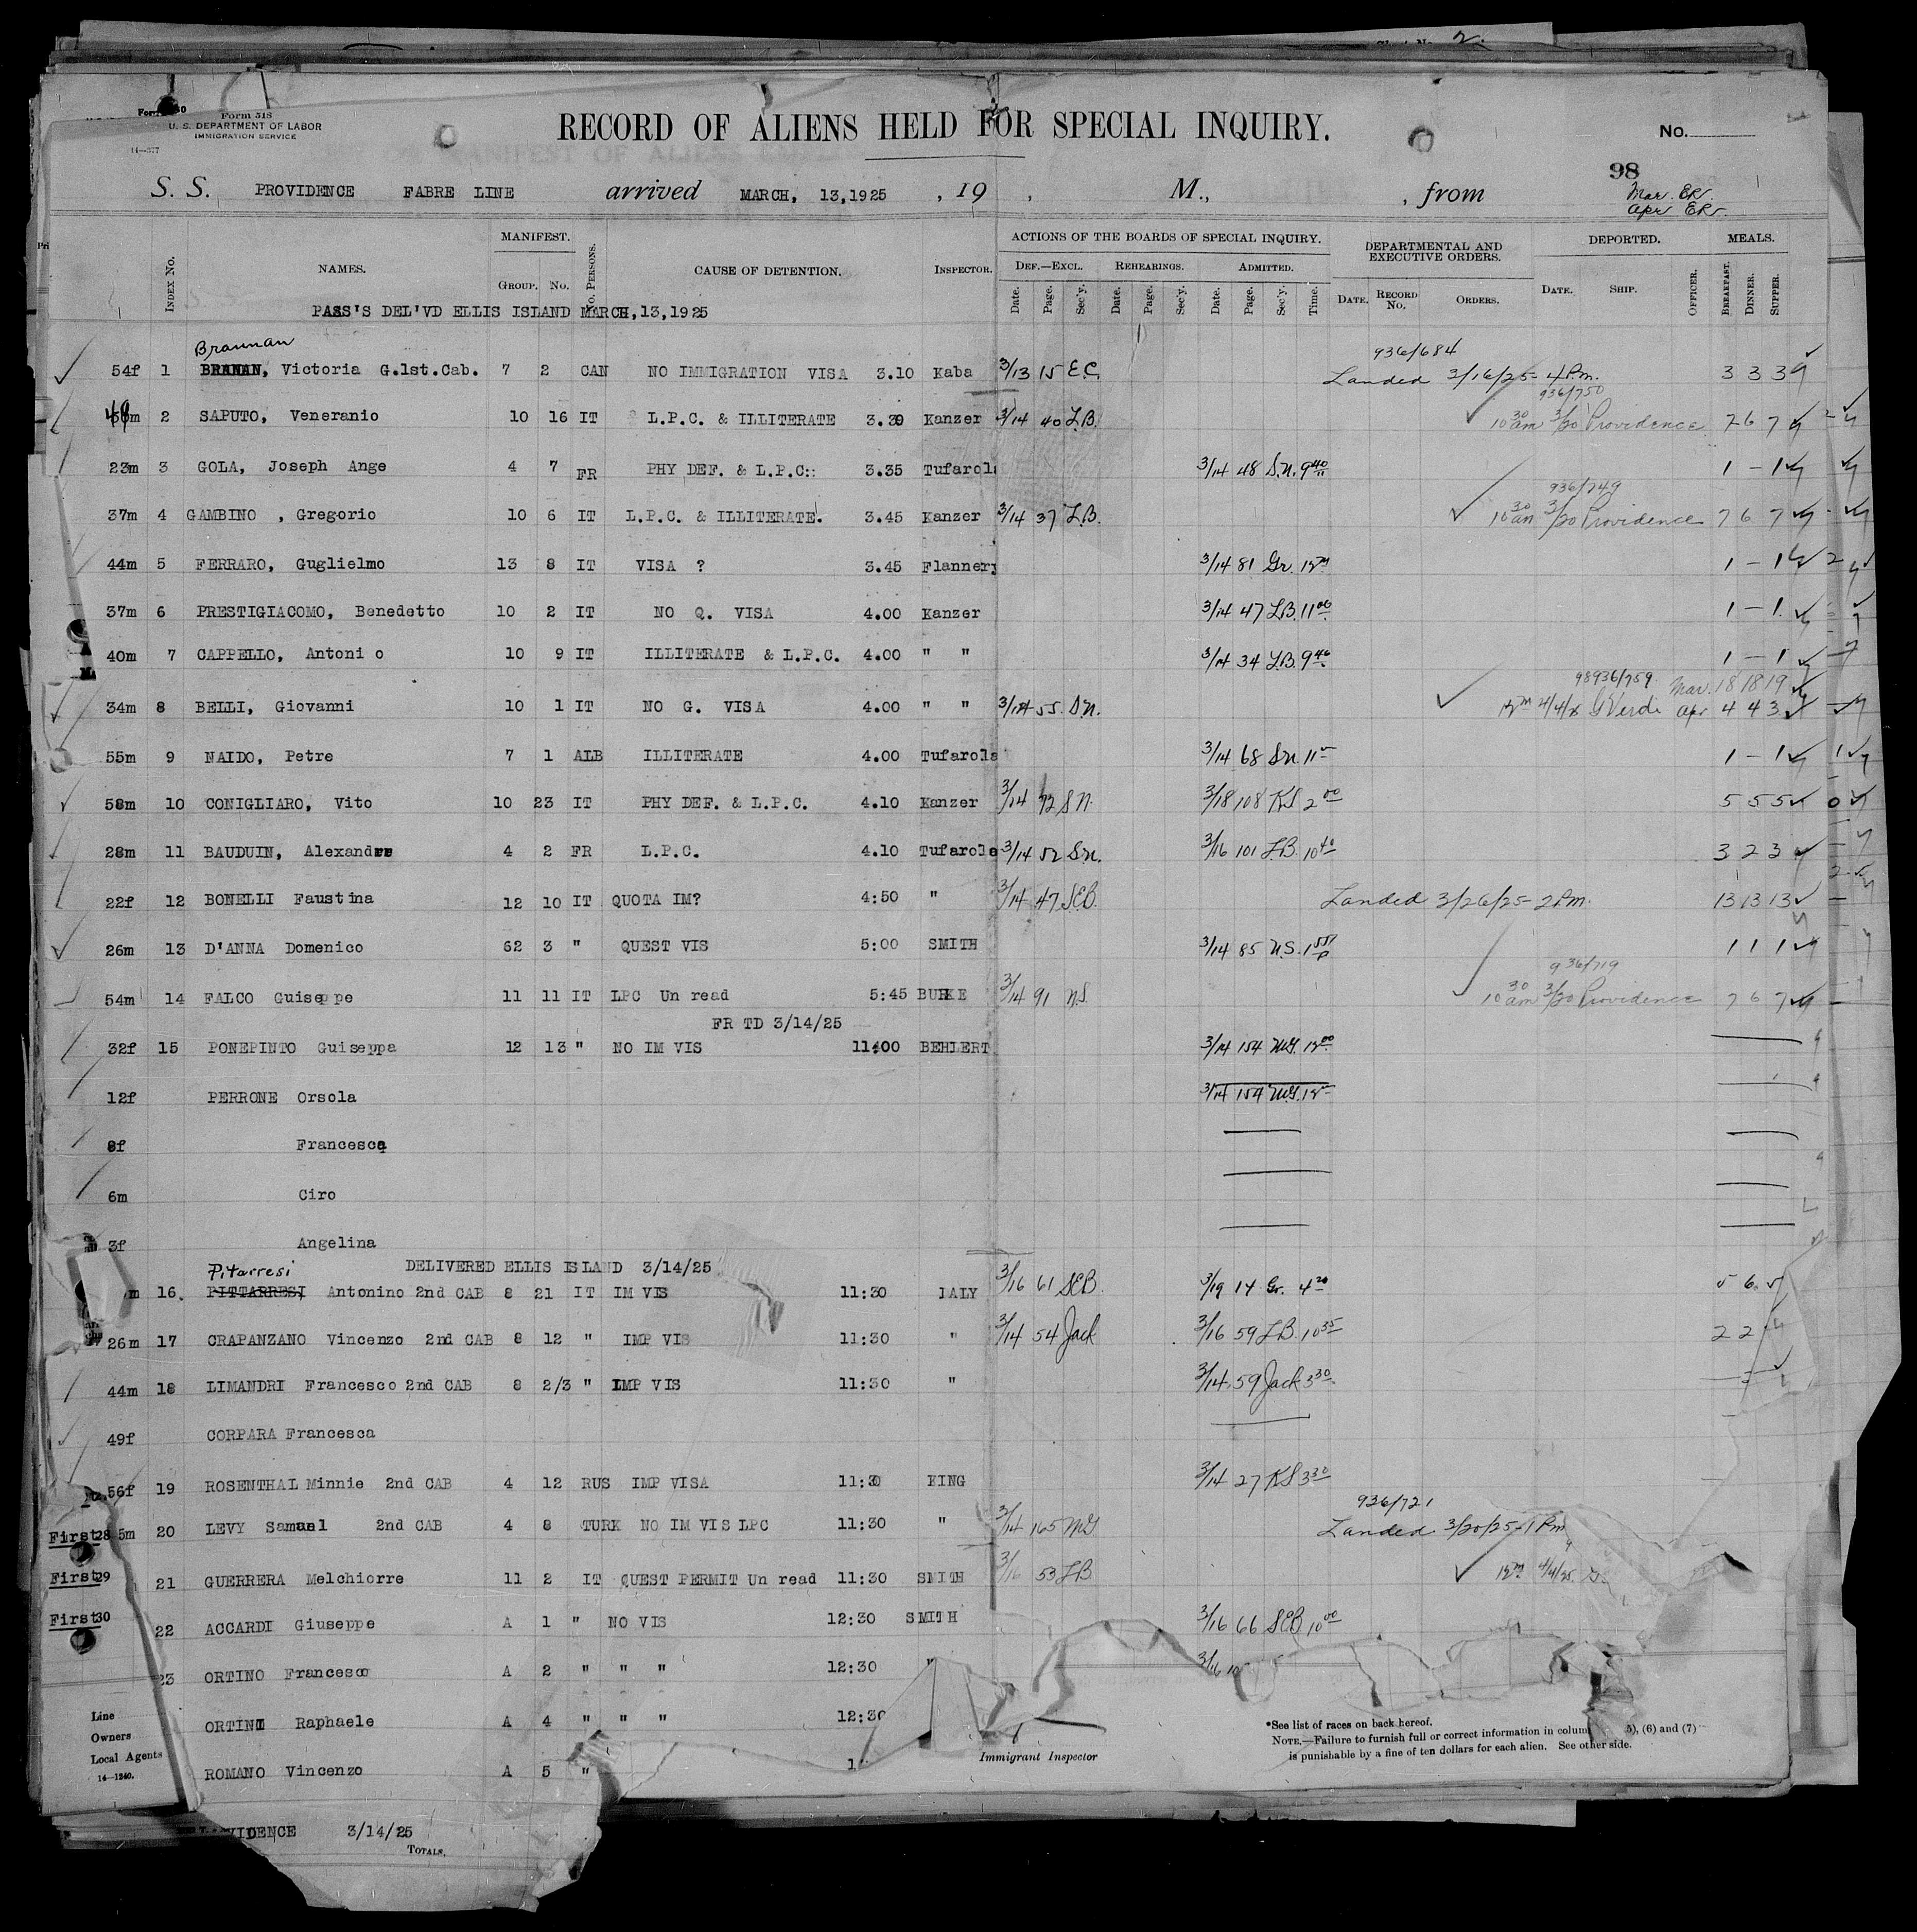 Form 518
U. S. DEPARTMENT OF LABOR
IMMIGRATION SERVICE
14—377
RECORD OF ALIENS HELD FOR SPECIAL INQUIRY.
No.
98
S. S. PROVIDENCE FABRE LINE arrived MARCH, 13,1925 , 19 , M., , from
Mar. ER.
Apr ER.
MANIFEST. ACTIONS OF THE BOARDS OF SPECIAL INQUIRY. DEPARTMENTAL AND EXECUTIVE ORDERS. DEPORTED. MEALS.
INDEX No. NAMES. GROUP. No. No. PERSONS. CAUSE OF DETENTION. INSPECTOR. DEF.—EXCL. REHEARINGS. ADMITTED.
Date. Page. Sec'y. Date. Page. Sec'y. Date. Page. Sec'y. Time. DATE. RECORD No. ORDERS. DATE. SHIP. OFFICER. BREAKFAST. DINNER. SUPPER.
PASS'S DEL'VD ELLIS ISLAND MARCH,13,1925
Brannan
936/684
54f 1 BRANAN, Victoria G.1st.Cab. 7 2 CAN NO IMMIGRATION VISA 3.10 Kaba 3/13 15 E.C. Landed 3/16/25- 4 P.m. 3 3 3
936/750
49m 2 SAPUTO, Veneranio 10 16 IT L.P.C. & ILLITERATE 3.30 Kanzer 3/14 40 L.B. 10 30 am 3/20 Providence 7 6 7
23m 3 GOLA, Joseph Ange 4 7 FR PHY DEF. & L.P.C:: 3.35 Tufarol 3/14 48 S.N. 9 40 1 – 1
936/749
37m 4 GAMBINO , Gregorio 10 6 IT L.P.C. & ILLITERATE. 3.45 Kanzer 3/14 37 L.B. 10 30 am 3/20 Providence 7 6 7
44m 5 FERRARO, Guglielmo 13 8 IT VISA ? 3.45 Flannery 3/14 81 Gr. 12 m 1 – 1
37m 6 PRESTIGIACOMO, Benedetto 10 2 IT NO Q. VISA 4.00 Kanzer 3/14 47 L.B. 11 00 1 – 1
40m 7 CAPPELLO, Antoni o 10 9 IT ILLITERATE & L.P.C. 4.00 " " 3/14 34 L.B. 9 46 1 – 1
98936/759 Mar. 18 18 19
34m 8 BELLI, Giovanni 10 1 IT NO G. VISA 4.00 " " 3/14 55 S.N. 12 m 4/4/25 G Verdi Apr 4 4 3
55m 9 NAIDO, Petre 7 1 ALB ILLITERATE 4.00 Tufarola 3/14 68 S.N. 11 1 – 1
58m 10 CONIGLIARO, Vito 10 23 IT PHY DEF. & L.P.C. 4.10 Kanzer 3/14 72 S.N. 3/18 108 KS 2 00 5 5 5
28m 11 BAUDUIN, Alexandre 4 2 FR L.P.C. 4.10 Tufarole 3/14 52 S.N. 3/16 101 L.B. 10 40 3 2 3
22f 12 BONELLI Faustina 12 10 IT QUOTA IM? 4:50 " 3/14 47 SEB. Landed 3/26/25- 2 P.m. 13 13 13
26m 13 D'ANNA Domenico 62 3 " QUEST VIS 5:00 SMITH 3/14 85 N.S. 1 55 p 1 1 1
936/719
54m 14 FALCO Guiseppe 11 11 IT LPC Un read 5:45 BURKE 3/14 91 N.S. 10 30 am 3/20 Providence 7 6 7
FR TD 3/14/25
32f 15 PONEPINTO Guiseppa 12 13 " NO IM VIS 11:00 BEHLERT 3/14 154 MG. 12 00
12f PERRONE Orsola 3/14 154 MG. 12
8f Francesca
6m Ciro
3f Angelina
DELIVERED ELLIS ISLAND 3/14/25
Pitarresi
m 16. PITTARRESI Antonino 2nd CAB 8 21 IT IM VIS 11:30 DALY 3/16 61 SEB. 3/19 14 Gr. 4 20 5 6 5
26m 17 CRAPANZANO Vincenzo 2nd CAB 8 12 " IMP VIS 11:30 " 3/14 54 Jack 3/16 59 L.B. 10 35 2 2
44m 18 LIMANDRI Francesco 2nd CAB 8 2/3 " IMP VIS 11:30 " 3/14 59 Jack 3 30
49f CORPARA Francesca
56f 19 ROSENTHAL Minnie 2nd CAB 4 12 RUS IMP VISA 11:30 KING 3/14 27 KS 3 30
936/721
First 28 5m 20 LEVY Samuel 2nd CAB 4 8 TURK NO IM VIS LPC 11:30 " 3/14 165 MG Landed 3/20/25- 1 P.m
First 29 21 GUERRERA Melchiorre 11 2 IT QUEST PERMIT Un read 11:30 SMITH 3/16 53 L.B. 12 m 4/4/25
First 30 22 ACCARDI Giuseppe A 1 " NO VIS 12:30 SMITH 3/16 66 SEB 10 00
23 ORTINO Francesco A 2 " " " 12:30 " 3/16
ORTINI Raphaele A 4 " " " 12:30
ROMANO Vincenzo A 5 "
Line
Owners
Local Agents
14—1240.
Immigrant Inspector
*See list of races on back hereof.
NOTE.—Failure to furnish full or correct information in colum 5), (6) and (7)
is punishable by a fine of ten dollars for each alien. See other side.
VIDENCE 3/14/25
TOTALS.